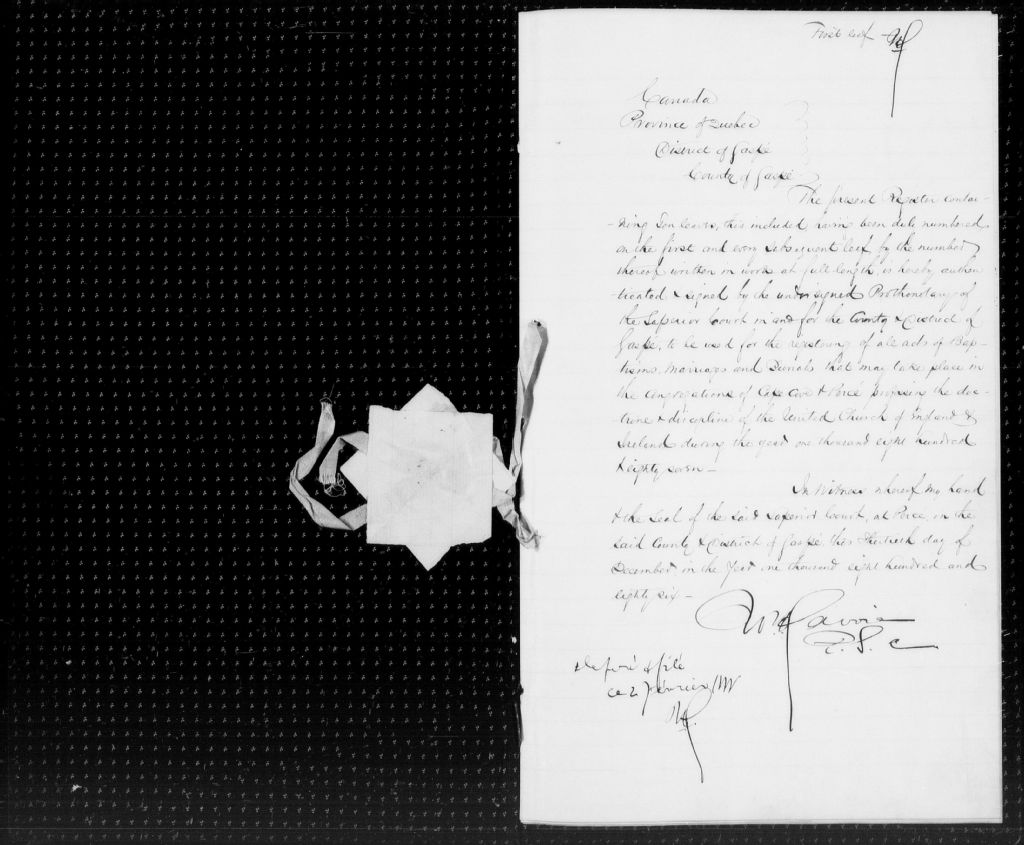 First leaf
Canada
Province of Quebec
District of Gaspé
County of Gaspé
The present Register contai-
-ning Ten leaves, this included, having been duly numbered
on the first and every subsequent leaf by the number
thereof written in words at full length, is hereby authen
-ticated & signed by the undersigned Prothonotary of
the Superior Court in and for the County & District of
Gaspé, to be used for the registering of all acts of Bap-
-tisms, Marriages and Burials that may take place in
the Congregations of Cape Cove & Percé professing the doc-
-trine & discipline of the United Church of England &
Ireland during the year one thousand eight hundred
& eighty seven -
In Witness whereof my hand
& the Seal of the said Superior Court, at Percé, in the
said County & District of Gaspé this thirtieth day of
December in the year one thousand eight hundred and
eighty six -
Lavoie
P. S. C
ce 2 février